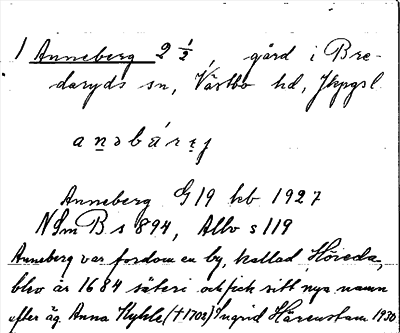 1 Anneberg 2 1/2, gård i Bre-
daryds sn, Västbo hd, Jkpgs l.
anəbárɛj
Anneberg G19 kb 1927
NSmB s 894, Allv s 119
Anneberg var fordom en by, kallad Höreda,
blev år 1684 säteri och fick sitt nya namn
efter äg. Anna Hyhle (†1702) Ingrid Härenstam 1930